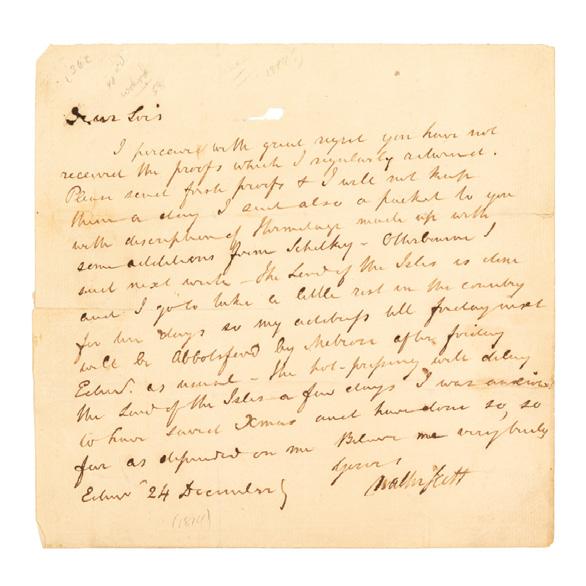 Dear Sirs
I perceive with great regret you have not
received the proofs which I regularly returned.
Please send fresh proofs & I will not keep
them a day I sent also a packet to you
with description of Hermitage made up with
some additions from Schetky - Otterbourne I
send next week - The Lord of the Isles is done
and I go to take a little rest in the country
for ten days so my address till friday next
will be Abbotsford by Melrose after friday
Edinr. as usual - The hot-pressing will delay
the Lord of the Isles a few days I was anxious
to have saved Xmas and have done so, so
far as depended on me Believe me very truly
Yours
Walter Scott
Edinr 24 December
(1814)